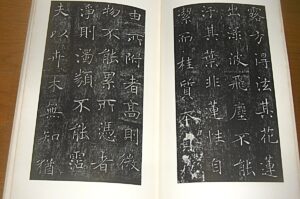 露方得泫其花蓮
出淥波飛塵不能
汙其葉非蓮性自
潔而桂質本貞良
由所附者高則微
物不能累所憑者
淨則濁類不能霑
夫以卉木無知猶